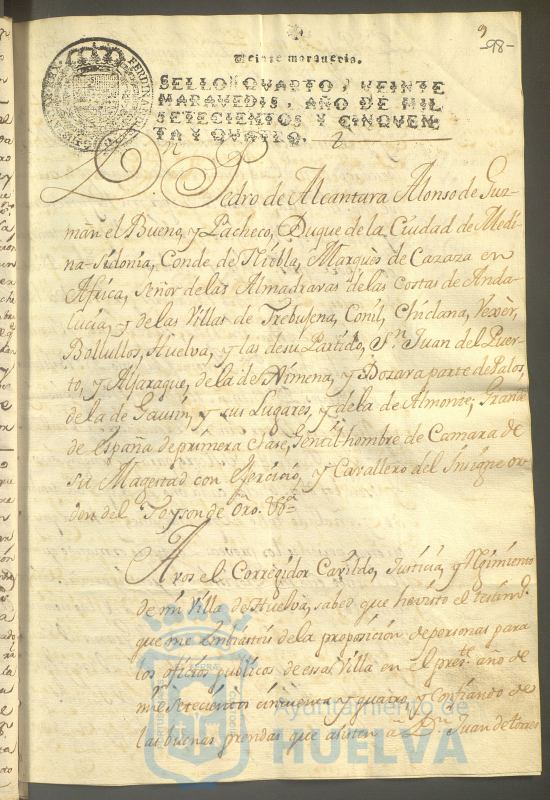 9
-98-
Veinte maravedis.
SELLO QVARTO, VEINTE
MARAVEDIS, AÑO DE MIL
SETECIENTOS Y CINQVEN-
TA Y QVATRO.
Dn. Pedro de Alcantara Alonso de Guz-
màn el Bueno, y Pacheco, Duque de la Ciudad de Medi-
na-Sidonia, Conde de Niebla, Marquès de Cazaza en
Africa, Señor de las Almadravas de las Costas de Anda-
lucia, y de las Villas de Trebujena, Conil, Chiclana, Vexèr,
Bollullos, Huelva, y las de su Partido, Sn. Juan del Puer-
to, y Aljaraque, de la de Ximena, y Dozava parte de Palos,
de la de Gausin, y sus Lugares, y de la de Almonte; Grande
de España de primera Clase, Gentil hombre de Camara de
su Magestad con Exercicio, y Cavallero del Insigne or-
den del Toyson de Oro. &a
A vos el Corregidor Cavildo, Justicia, y Regimiento
de mi Villa de Huelva, sabed que he visto el testimo.
que me embiasteis de la proposicion de personas para
los oficios publicos de essa Villa en el preste. año de
mil setecientos cinquenta y quatro, y confiando de
las buenas prendas que asisten a Dn. Juan de torres
Ayuntamiento de
HUELVA